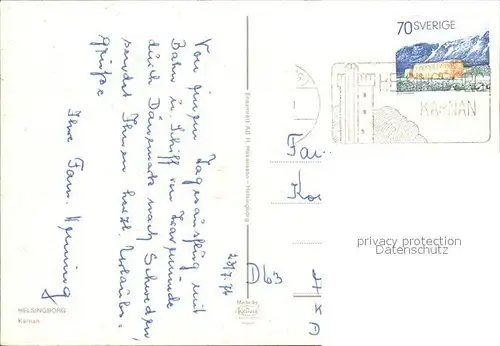 Von einem Tagesausflug mit
Bahn u. Schiff von Travemünde
durch Dänemark nach Schweden,
sendet Ihnen herzl. Urlaubs-
grüße
Ihre Fam. Henning
HELSINGBORG
Kärnan
Ensamrätt A.B. H. Håkansson - Helsingborg
23/7.74
70 SVERIGE
KÄRNAN
Fam
D 63
privacy protection
Datenschutz